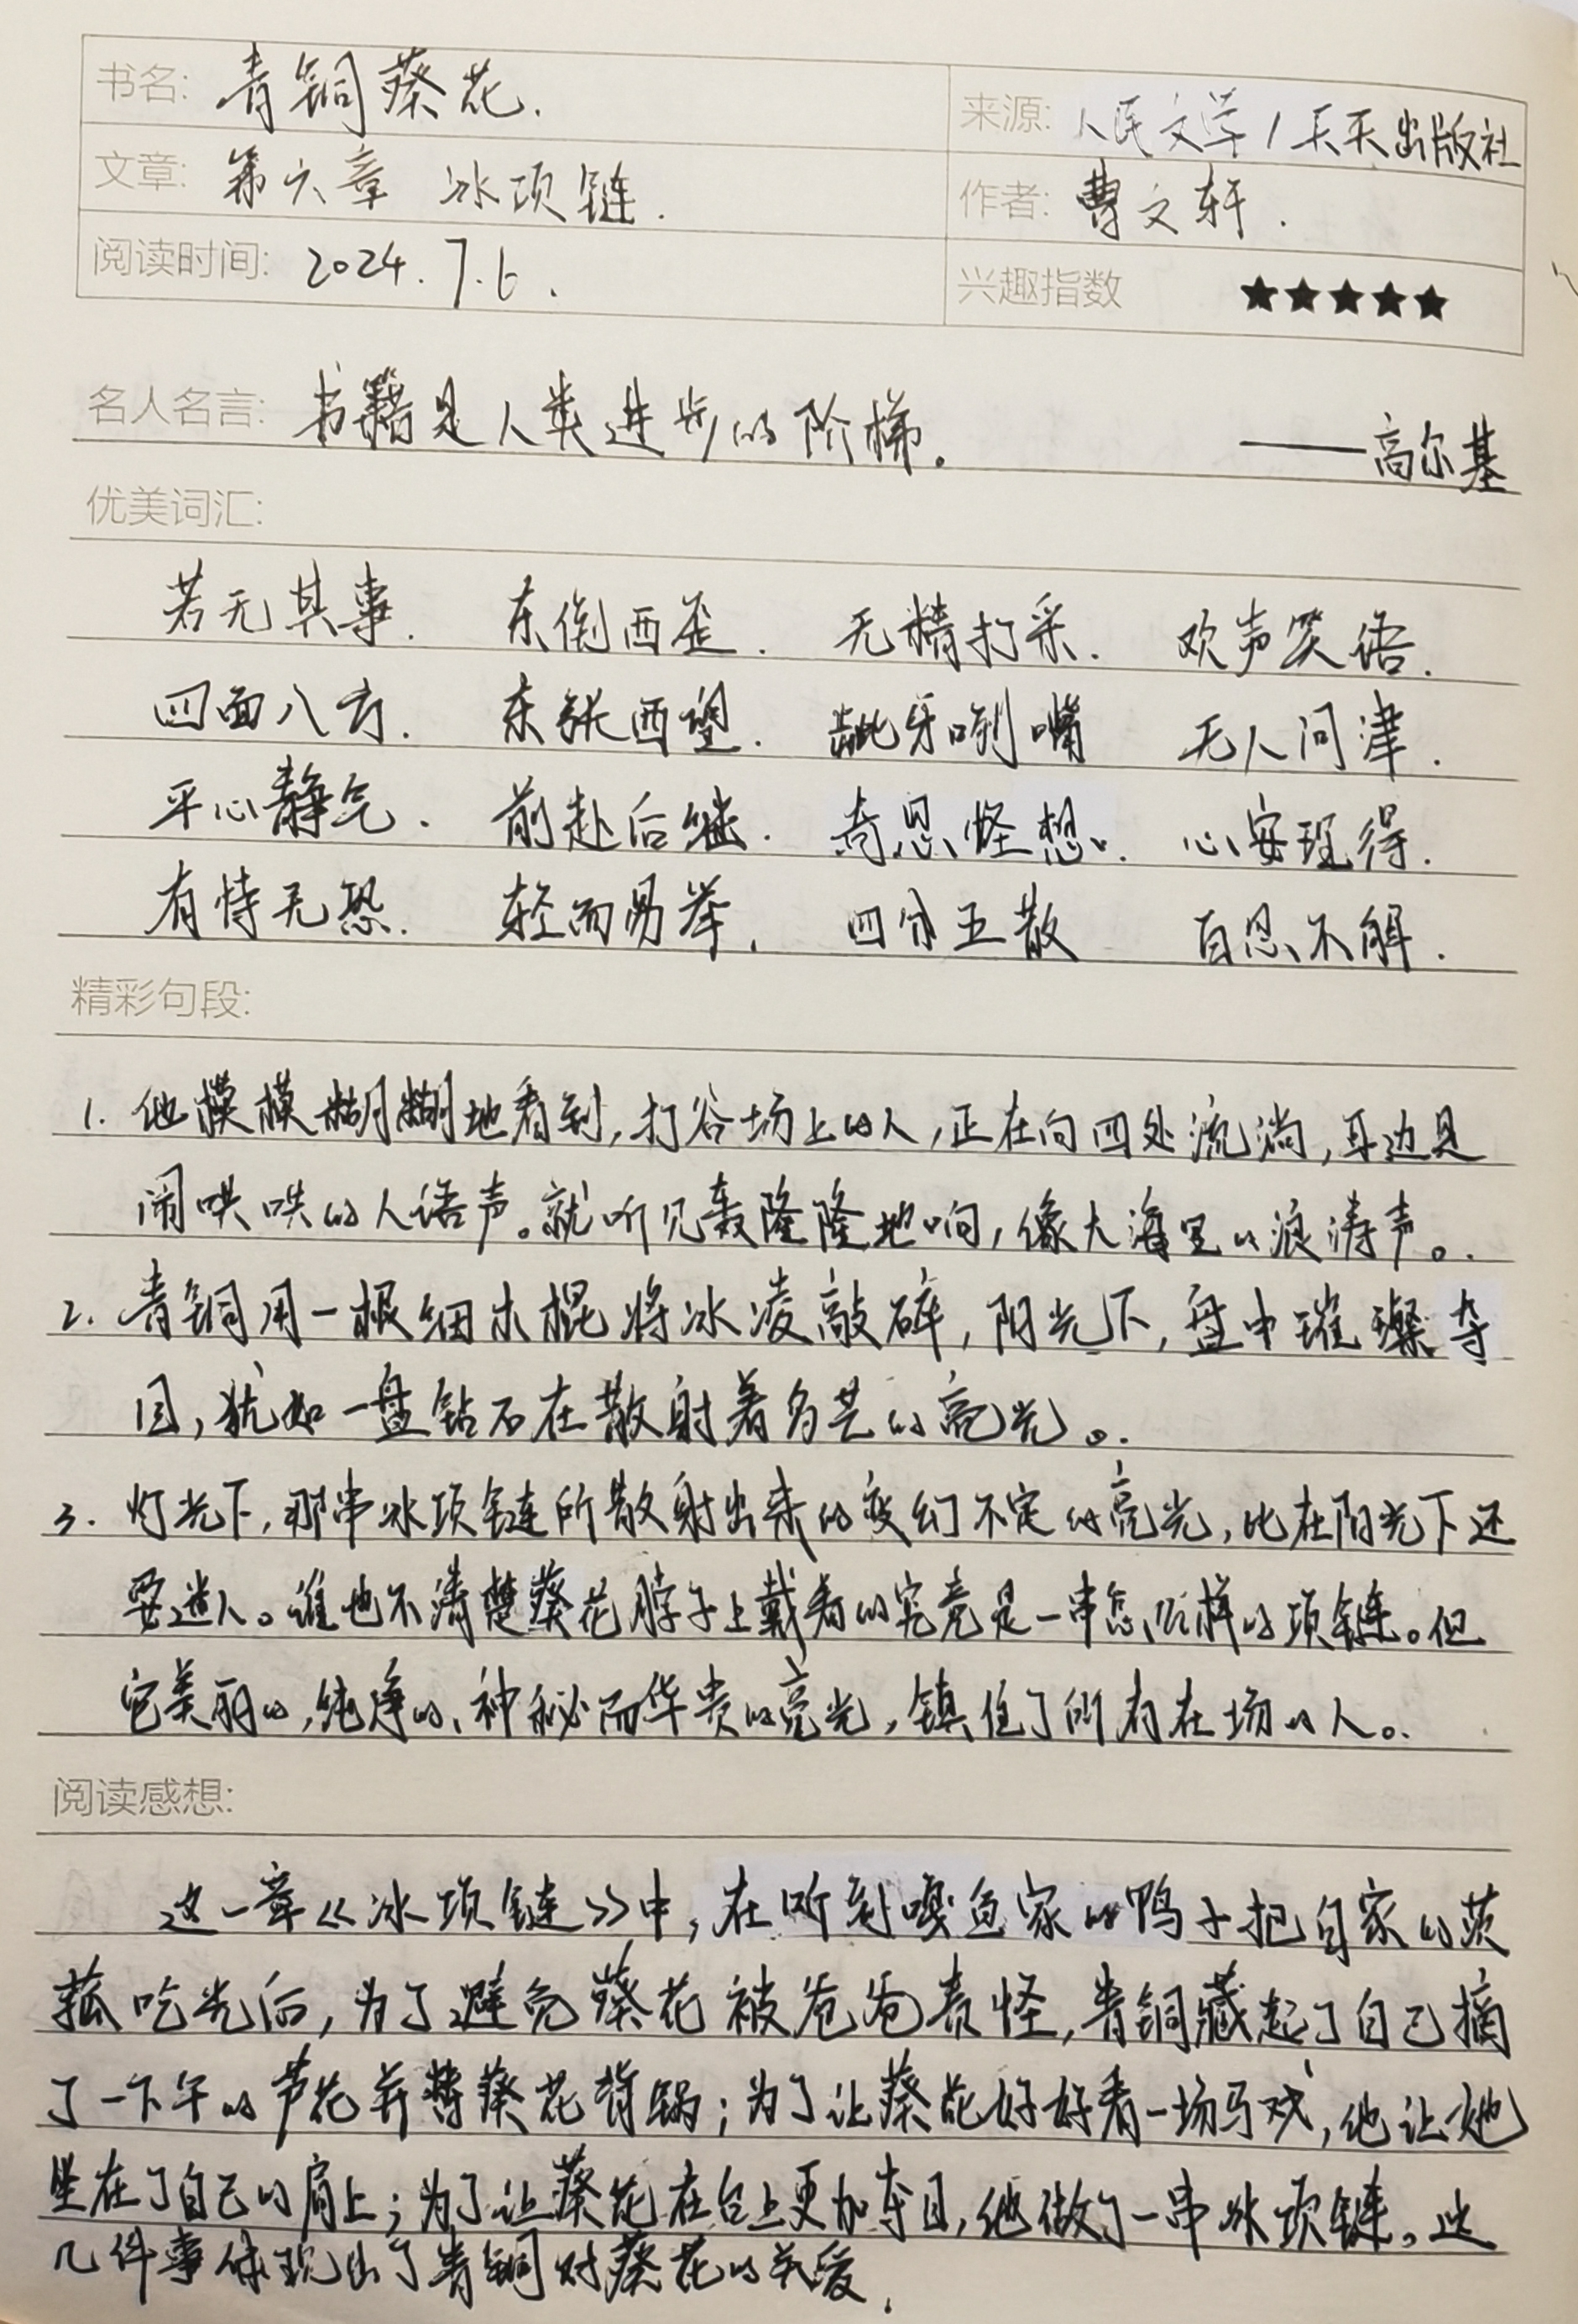 书名: 青铜葵花. 来源: 人民文学/天天出版社
文章: 第六章 冰项链. 作者: 曹文轩.
阅读时间: 2024.7.6. 兴趣指数 ★★★★★
名人名言: 书籍是人类进步的阶梯。 ——高尔基
优美词汇:
若无其事. 东倒西歪. 无精打采. 欢声笑语.
四面八方. 东张西望. 龇牙咧嘴 无人问津.
平心静气. 前赴后继. 奇思怪想. 心安理得.
有恃无恐. 轻而易举. 四分五散 百思不解.
精彩句段:
1. 他模模糊糊地看到,打谷场上的人,正在向四处流淌,耳边是
闹哄哄的人语声。就听见轰隆隆地响,像大海里的浪涛声。.
2. 青铜用一根细木棍将冰凌敲碎,阳光下,盘中璀璨夺
目,犹如一盘钻石在散射着多芒的亮光。.
3. 灯光下,那串冰项链所散射出来的变幻不定的亮光,比在阳光下还
要迷人。谁也不清楚葵花脖子上戴着的究竟是一串怎么样的项链。但
它美丽的,纯净的、神秘而华贵的亮光,镇住了所有在场的人。.
阅读感想:
这一章《冰项链》中,在听到嘎鱼家的鸭子把自家的茨
菰吃光后,为了避免葵花被爸爸责怪,青铜藏起了自己摘
了一下午的芦花并替葵花背锅;为了让葵花好好看一场马戏,他让她
坐在了自己的肩上;为了让葵花在台上更加夺目,他做了一串冰项链。这
几件事体现出了青铜对葵花的关爱.